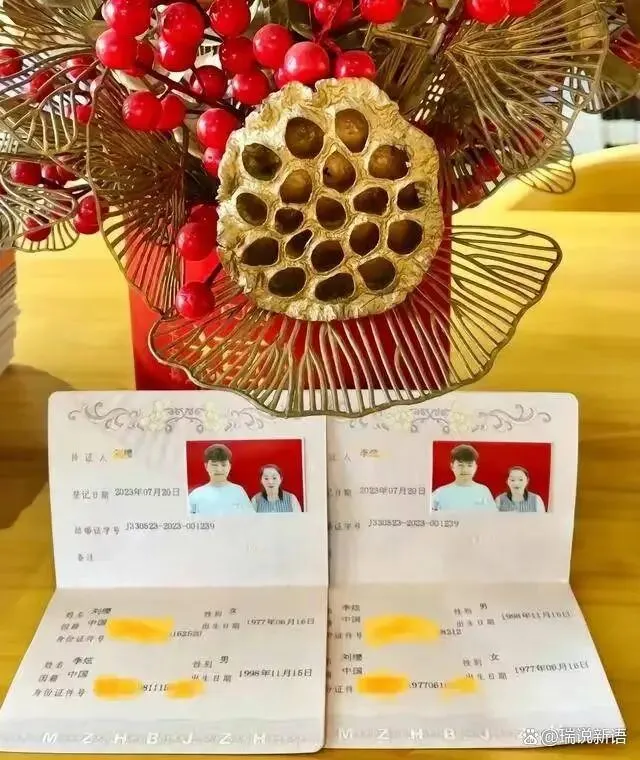 持证人 刘樱
登记日期 2023年07月20日
结婚证字号 J330523-2023-001239
备注
姓名 刘樱 性别 女
国籍 中国 出生日期 1977年06月16日
身份证件号 162520
姓名 李炫 性别 男
国籍 中国 出生日期 1998年11月15日
身份证件号 8111
MZHBJZH
证人 李炫
登记日期 2023年07月20日
证字号 J330523-2023-001239
备注
姓名 李炫 性别 男
国籍 中国 出生日期 1998年11月15日
身份证件号 8212
姓名 刘樱 性别 女
国籍 中国 出生日期 1977年06月16日
身份证件 977061
MZHBJZ
瑞说新语